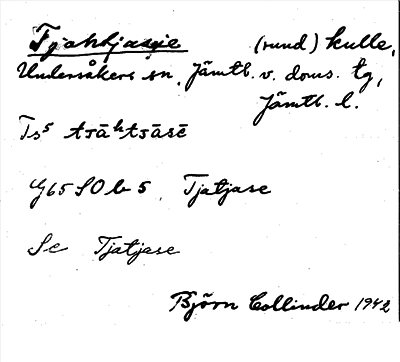 Tjahtjasje (rund) kulle,
Undersåkers sn, Jämtl. v. doms. tg,
Jämtl. l.
Ts5 tsāʰtsāsē
G65 SO b 5 Tjatjase
Se Tjatjase
Björn Collinder 1942